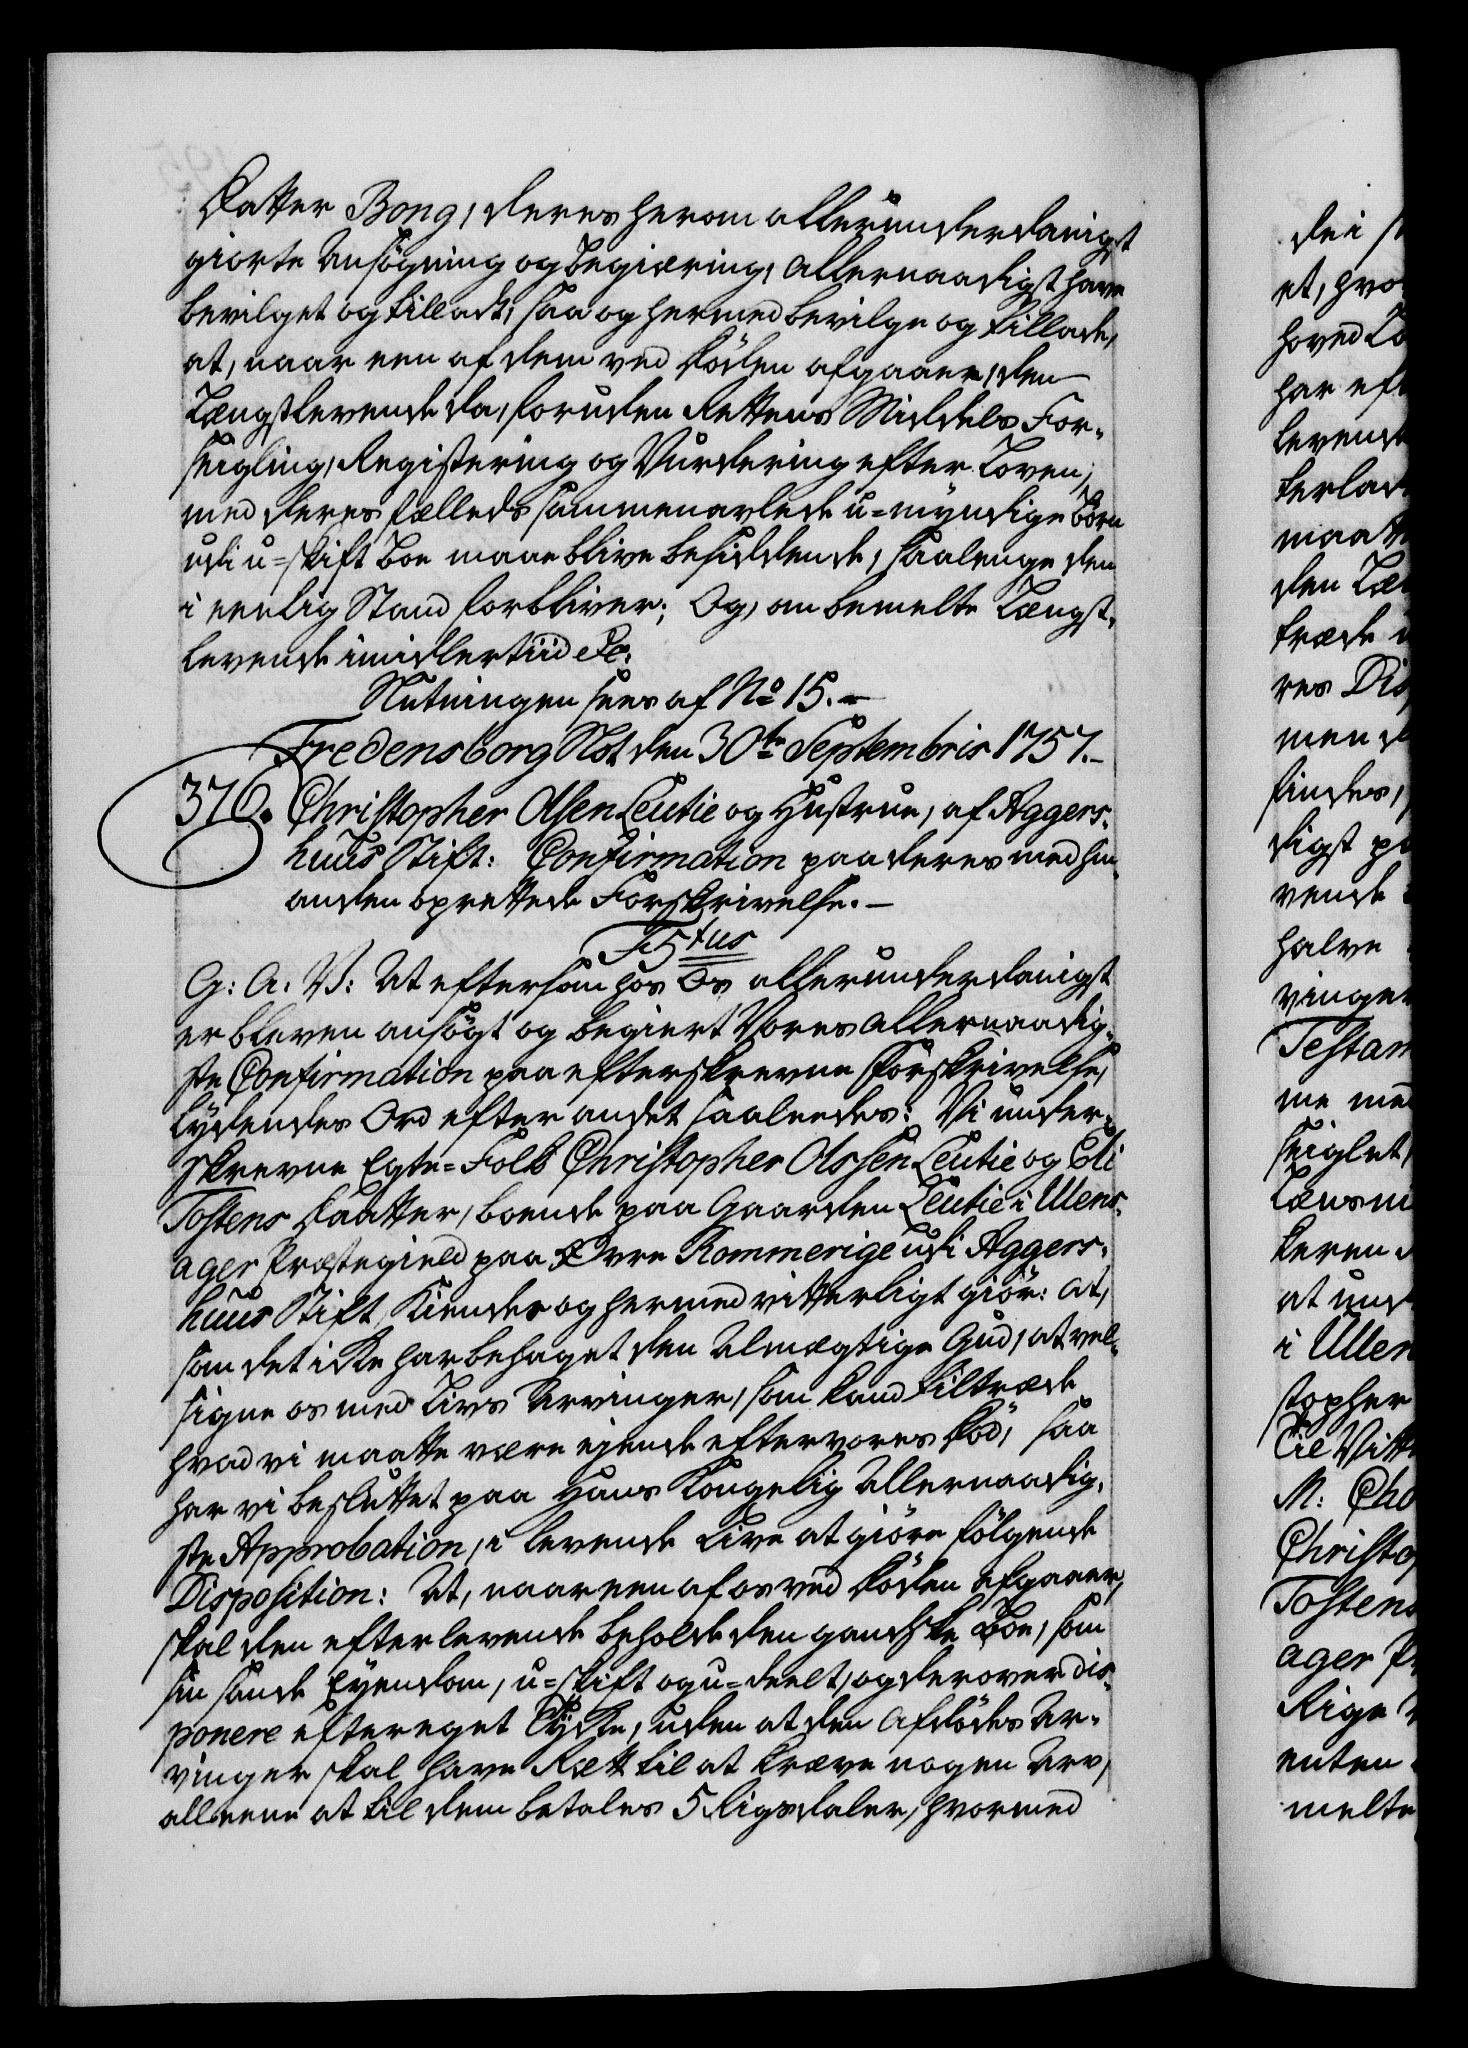 Datter Bong, deres herom allerunderdanigst
giorte Ansøgning og Begiæring, allernaadigst have
bevilget og tilladt, saa og hermed bevilge og tillade,
at, naar een af dem ved Døden afgaaer, den
Længstlevende da, foruden Rettens Middels For-
seigling, Registering og Vurdering efter Loven,
med deres fælleds sammenavlede u-myndige Børn
udi u-skift Boe maae blive besiddende, saalenge den
i eenlig Stand forbliver; Og, om bemelte Længst-
levende imidlertiid etc:
Slutningen sees af No 15.
Fredensborg Slot den 30te Septembris 1757.
376. Christopher Olsen Leutie og Hustrue, af Aggers-
huus Stift: Confirmation paa deres med hin-
anden oprettede Forskrivelse.
F5tus
G: A. V: At eftersom hos Os allerunderdanigst
er bleven ansøgt og begiert Vores allernaadig-
ste Confirmation paa efterskrevne Forskrivelse,
lydendes Ord efter andet saaleedes: Vi under-
skrevne Egte-Folk Christopher Olssen Leutie og Eli
Tostens Daatter, boende paa Gaarden Leutie i Ulens-
ager Præstegield paa Øvre Rommerige udi Aggers-
huus Stift, Kiender og hermed vitterligt giør: at,
som det icke har behaget den Almægtige Gud, at vel-
signe os med Livs Arvinger, som kand tiltræde
hvad vi maatte være ejende efter vores Død, saa
har vi besluttet paa Hans Kongelig Allernaadig-
ste Approbation, i levende Live at giøre følgende
Disposition: At, naar een af os ved Døden afgaaer,
skal den efterlevende beholde den gandske Boe, som
sin sande Eyendom, u-skift og u-deelt, og derover dis-
ponere efter eget Tycke, uden at den Afdødes Ar-
vinger skal have Rætt til at kræve nogen Arv,
alleene at til dem betales 5 Rigsdaler, hvormed